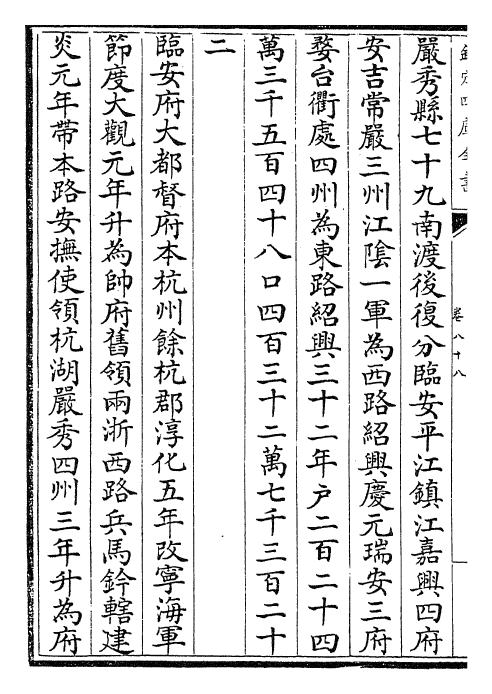 欽定四庫全書
卷八十八
嚴秀縣七十九南渡後復分臨安平江鎮江嘉興四府
安吉常嚴三州江陰一軍為西路紹興慶元瑞安三府
婺台衢處四州為東路紹興三十二年戶二百二十四
萬三千五百四十八口四百三十二萬七千三百二十
二
臨安府大都督府本杭州餘杭郡淳化五年改寧海軍
節度大觀元年升為帥府舊領兩浙西路兵馬鈐轄建
炎元年帶本路安撫使領杭湖嚴秀四州三年升為府